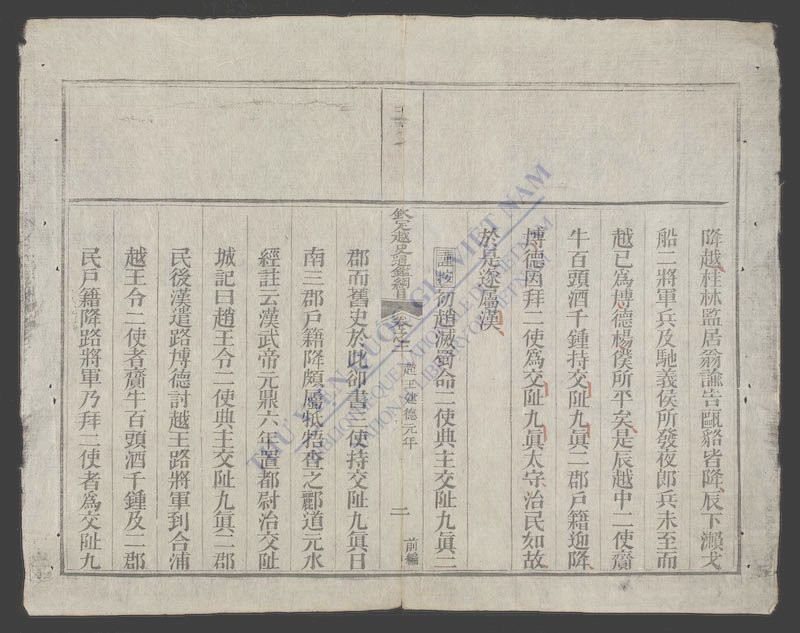 降越桂林監居翁諭告甌貉皆降辰下瀨戈
船二將軍兵及馳義侯所發夜郎兵未至而
越已爲博德楊僕所平矣是辰越中二使齎
牛百頭酒千鍾持交趾九眞二郡戶籍迎降
博德因拜二使爲交趾九眞太守治民如故
於是遂屬漢
謹按初趙滅蜀命二使典主交趾九眞二
欽定越史通鑑綱目 卷之二 趙王建德元年 二 前編
郡而舊史於此卻書三使持交趾九眞日
南三郡戶籍降頗屬牴牾查之酈道元水
經註云漢武帝元鼎六年置都尉治交趾
城記曰趙王令二使典主交趾九眞二郡
民後漢遣路博德討越王路將軍到合浦
越王令二使者齎牛百頭酒千鍾及二郡
民戶籍降路將軍乃拜二使者爲交趾九
THƯ VIỆN QUỐC GIA VIỆT NAM
BIBLIOTHEQUE NATIONALE DU VIETNAM
NATIONAL LIBRARY OF VIETNAM